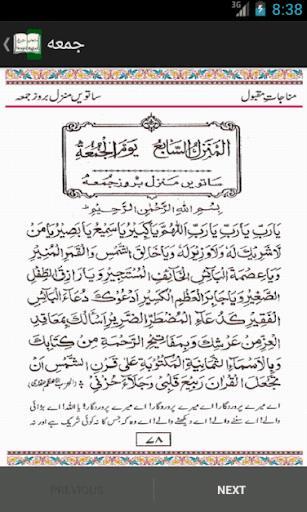 3G 8:38
جمعه
مناجات مقبول
ساتویں منزل بروز جمعہ
اَلْمَنْزِلُ السَّابِعُ يَوْمُ الْجُمُعَةِ
ساتویں منزل بروز جمعہ
بِسْمِ اللهِ الرَّحْمٰنِ الرَّحِيْمِ
يَارَبِّ يَارَبِّ يَارَبِّ اَللّٰهُمَّ يَاكَبِيْرُ يَاسَمِيْعُ يَابَصِيْرُ يَامَنْ
لَّا شَرِيْكَ لَهٗ وَلَا وَزِيْرَلَهٗ وَيَاخَالِقَ الشَّمْسِ وَالْقَمَرِ الْمُنِيْرِ
وَيَاعِصْمَةَ الْبَآئِسِ الْخَآئِفِ الْمُسْتَجِيْرِ وَيَا رَازِقَ الطِّفْلِ
الصَّغِيْرِ وَيَاجَابِرَ الْعَظْمِ الْكَسِيْرِ اَدْعُوْكَ دُعَآءَ الْبَآئِسِ
الْفَقِيْرِ كَدُعَآءِ الْمُضْطَرِّ الضَّرِيْرِ اَسْاَلُكَ بِمَعَاقِدِ
الْعِزِّ مِنْ عَرْشِكَ وَبِمَفَاتِيْحِ الرَّحْمَةِ مِنْ كِتَابِكَ
وَبِالْاَسْمَآءِ الثَّمَانِيَةِ الْمَكْتُوْبَةِ عَلٰى قَرْنِ الشَّمْسِ اَنْ
تَجْعَلَ الْقُرْاٰنَ رَبِيْعَ قَلْبِيْ وَجَلَآءَ حُزْنِيْ
اے میرے پروردگار! اے میرے پروردگار! اے میرے پروردگار! یا اللہ! اے بڑائی
والے! اے سننے والے! اے دیکھنے والے! اے وہ کہ جس کا نہ کوئی شریک ہے اور نہ
۷۸
PREVIOUS
NEXT